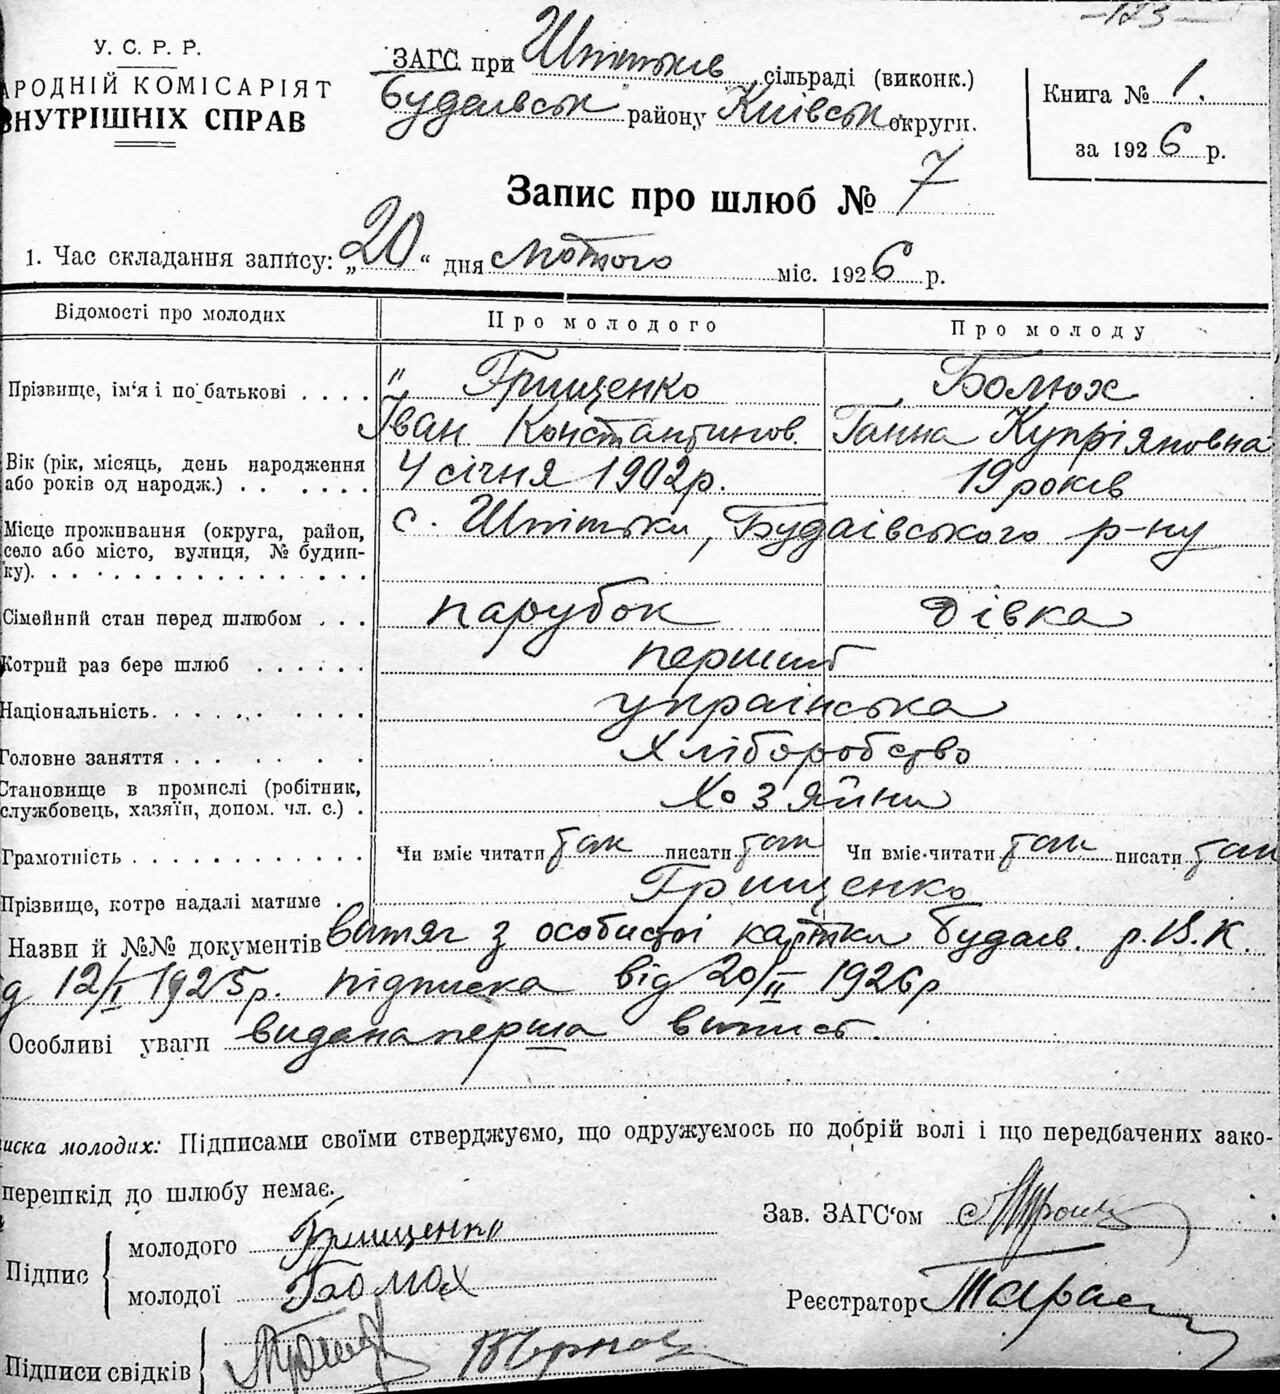 -173-
У. С. Р. Р.
АРОДНІЙ КОМІСАРІЯТ
ВНУТРІШНІХ СПРАВ
ЗАГС при Шпітьків сільраді (виконк.)
Будаївськ району Київськ округи.
Книга № 1.
за 1926 р.
Запис про шлюб № 7
1. Час складання запису: „20“ дня лютого міс. 1926 р.
Відомості про молодих Про молодого Про молоду
Прізвище, ім'я і по батькові . . . . " Грищенко Болюх
Іван Константинов. Ганна Купріяновна
Вік (рік, місяць, день народження або років од народж.) . . . . . . 4 січня 1902р. 19 років
Місце проживання (округа, район, село або місто, вулиця, № будинку). . . . с. Шпітьки, Будаівського р-ну
Сімейний стан перед шлюбом . . . парубок дівка
Котрий раз бере шлюб . . . . . . перший
Національність. . . . . . . . . . українська
Головне заняття . . . . . . . . . Хліборобство
Становище в промислі (робітник, службовець, хазяїн, допом. чл. с.) . Хоз'яйни
Грамотність . . . . . . . . . . . . Чи вміє читати так писати так Чи вміє читати так писати так
Прізвище, котре надалі матиме . Грищенко
Назви й №№ документів витяг з особистої картки Будаів. р.В.К.
д 12/I 1925р. підписка від 20/II 1926р
Особливі уваги видана перша випис.
иска молодих: Підписами своїми стверджуємо, що одружуємось по добрій волі і що передбачених зако-
перешкід до шлюбу немає.
Зав. ЗАГС'ом
Підпис молодого Грищенко
молодої Болюх
Реєстратор Тарас
Підписи свідків